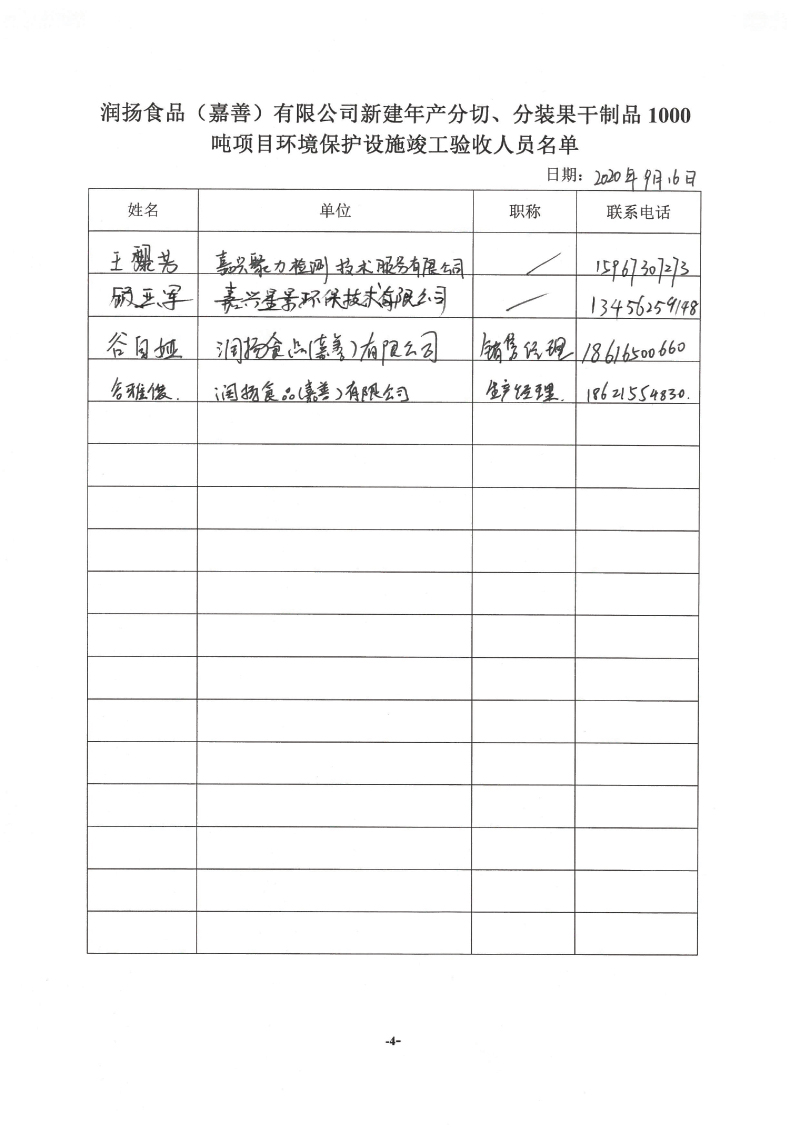 润扬食品（嘉善）有限公司新建年产分切、分装果干制品 1000
吨项目环境保护设施竣工验收人员名单
日期：2020年9月16日
姓名 单位 职称 联系电话
王 芳 嘉兴聚力检测技术服务有限公司 / 15967307273
顾亚军 嘉兴量景环保技术有限公司 / 13456259148
谷自娅 润扬食品(嘉善)有限公司 销售经理 18616500660
谷雅俊. 润扬食品(嘉善)有限公司 生产经理. 18621554830.
-4-